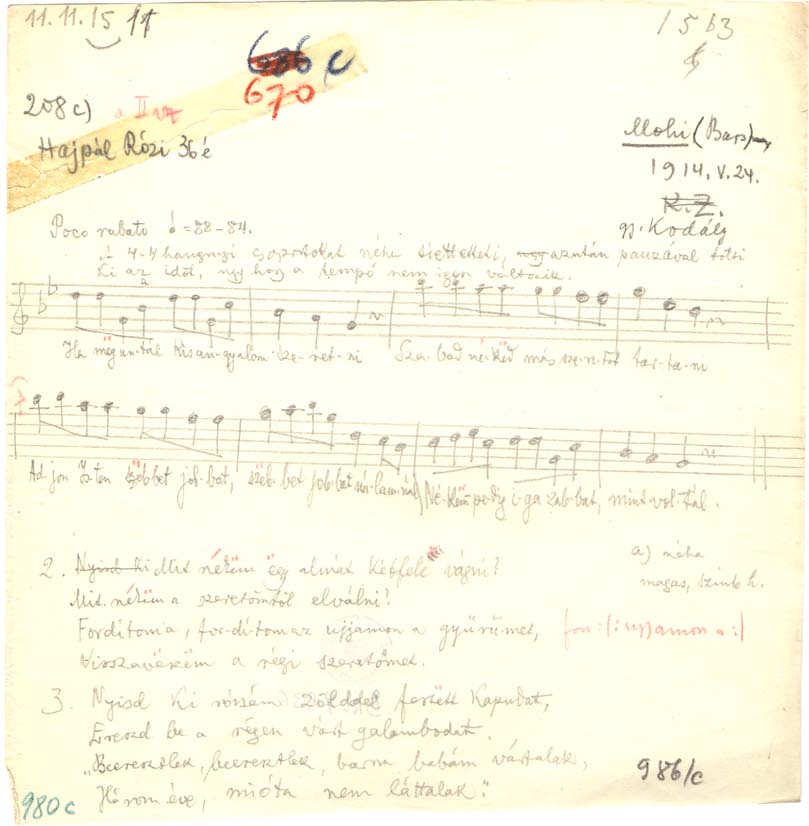 11.11.15
1563
686 c
670
208 c) a II
Hajpál Rózi 36 é
Mohi (Bars)
1914. V. 24.
R. Z.
gy. Kodály
Poco rubato = 88-84.
A 4-4 hangnyi csoportokat néha siettetheti, azután pauzával tölti
ki az időt, úgy hogy a tempó nem igen változik.
a
Ha még un-tál kis an-gyalom sze-ret-ni Sza-bad né-këd más sze-re-tőt tar-ta-ni
Ad-jon Is-ten szëb-bet job-bat, szëb-bet job-bat ná-lam-nál Né-këm pe-dig i-ga-zab-bat, mint vol-tál.
2. Nyisd ki Mit nékëm ëgy almát kétfele vágni?
Mit nékëm a szeretőmtől elválni?
Fordítom a, for-dí-tom az ujjamon a gyűrűmet, fon :(: ujjamon a :)
Visszavëszëm a régi szeretőmet.
a) néha
magas, szinte h.
3. Nyisd ki rózsám zölddel festëtt kapudat,
Ereszd be a régen várt galambodat.
„Beeresztlek, beeresztlek, barna babám vártalak,
Három éve, mióta nem láttalak."
986/c
980 c